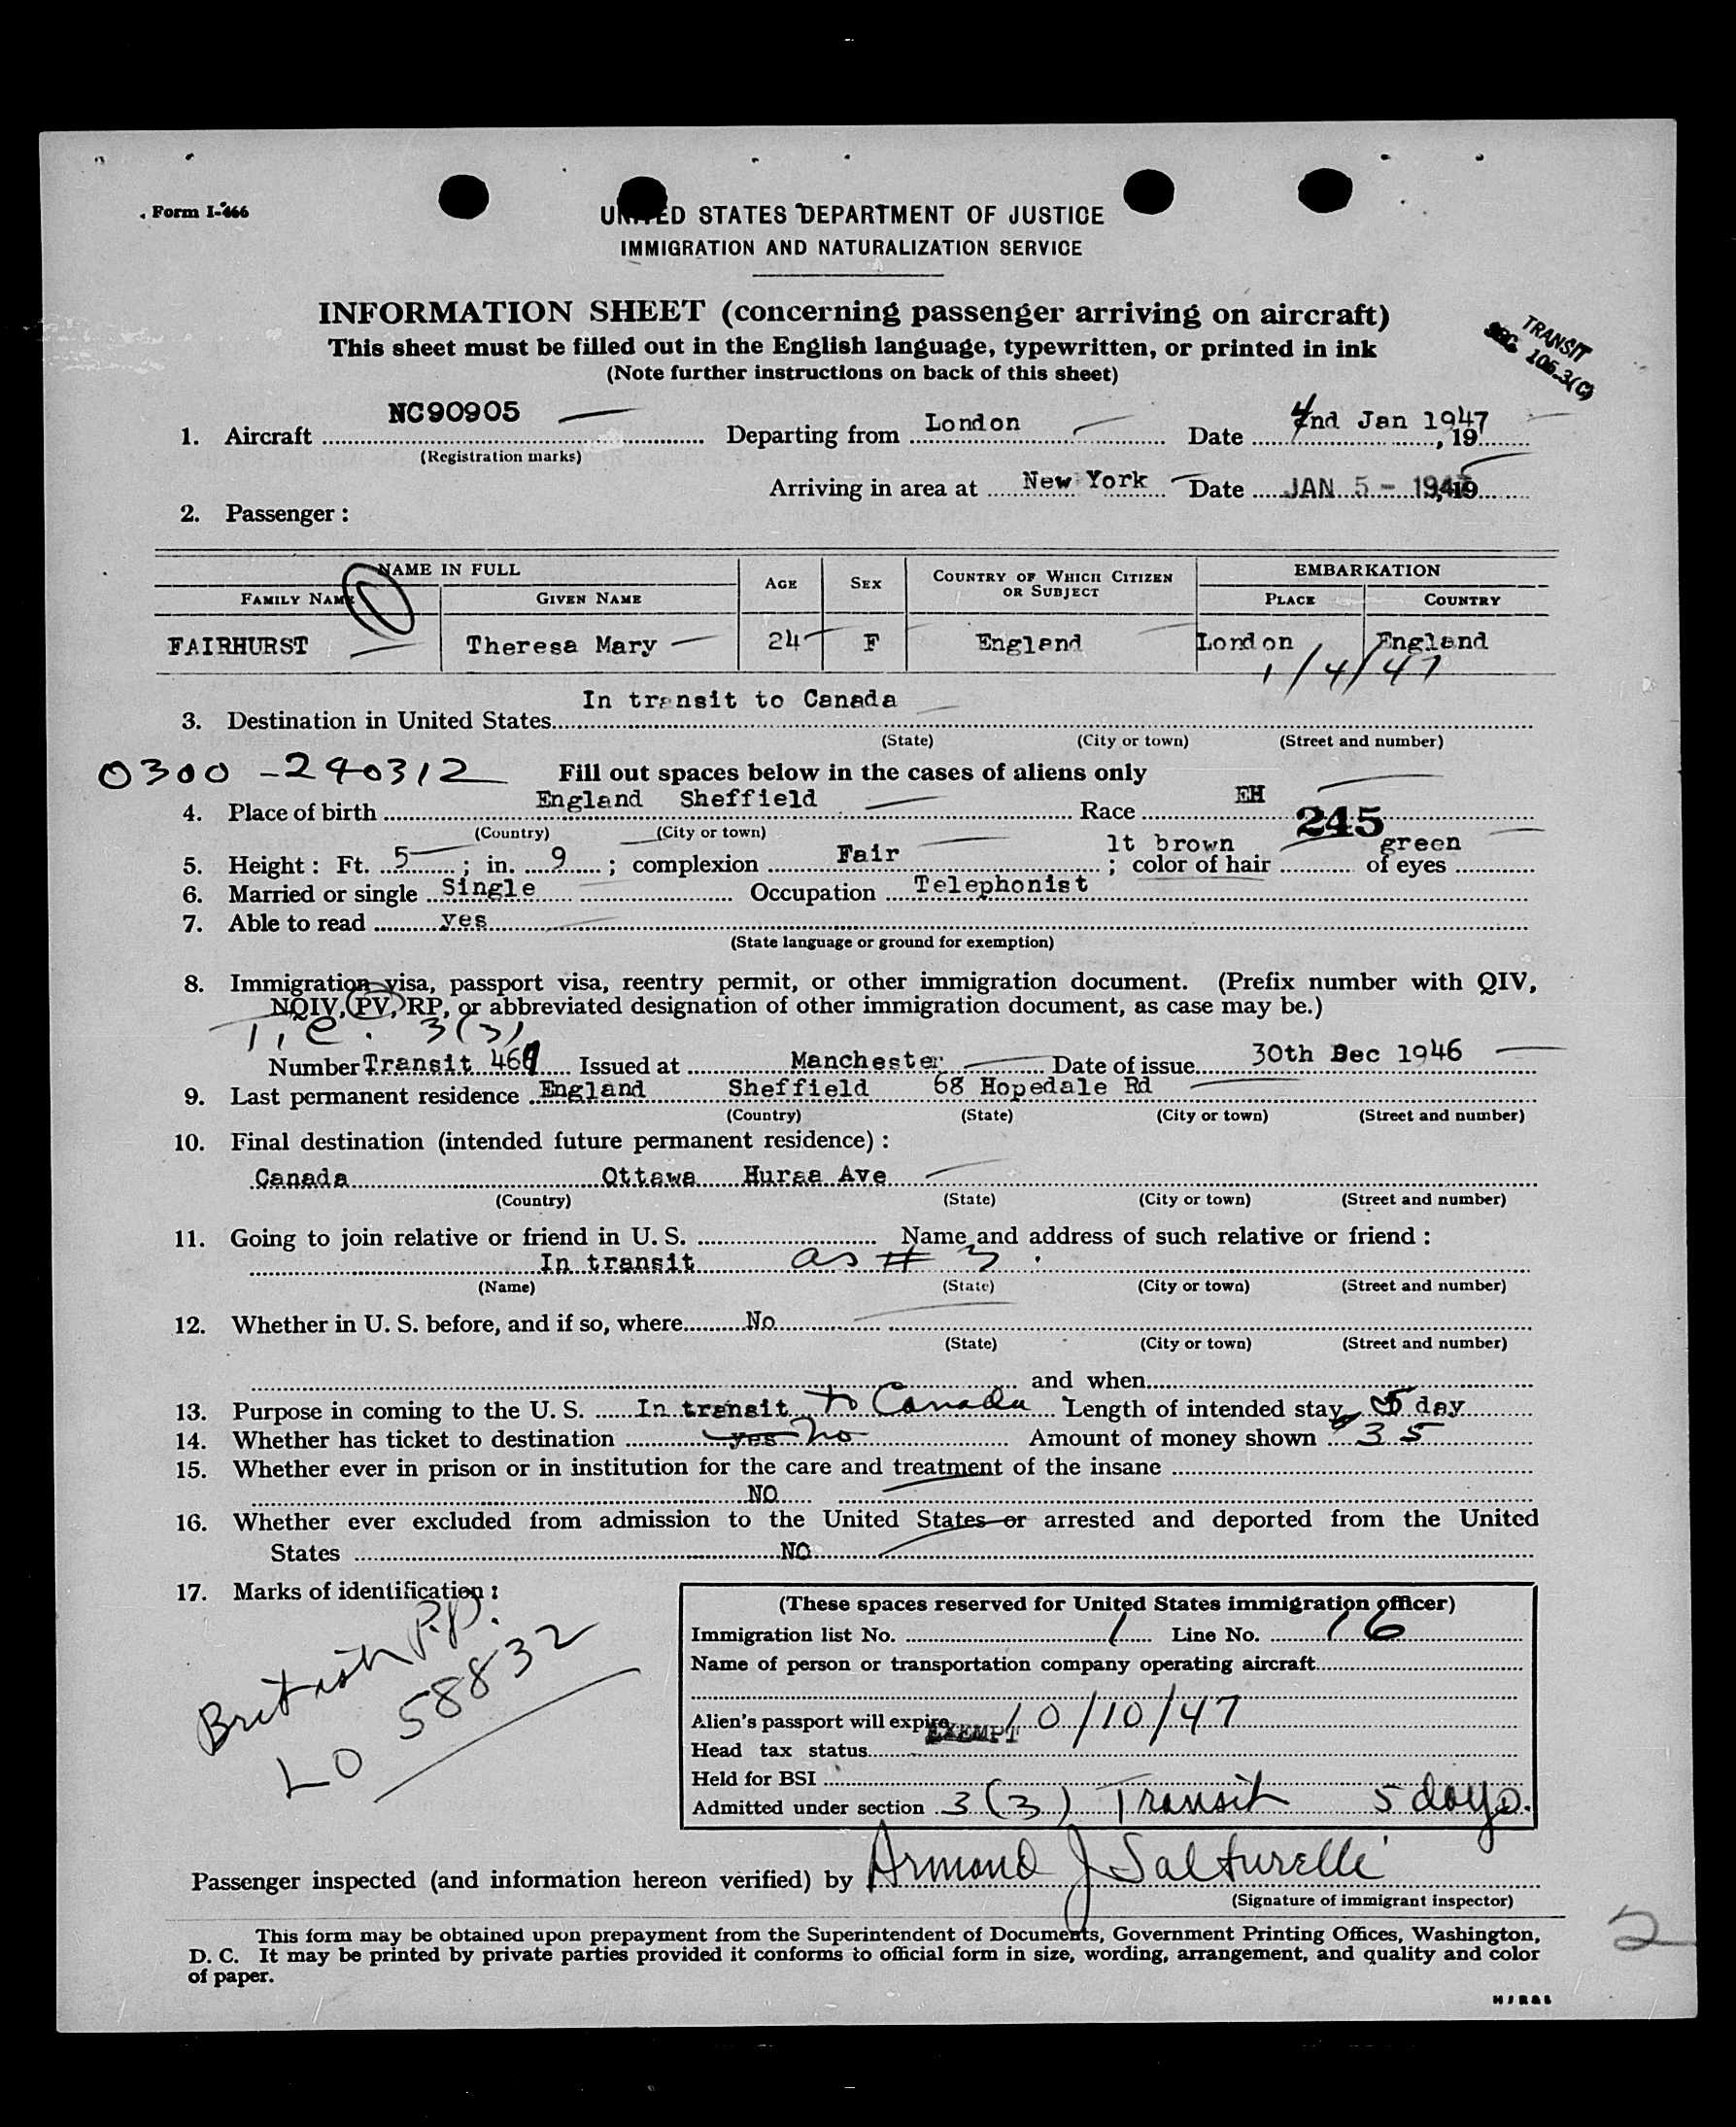 Form I-466
UNITED STATES DEPARTMENT OF JUSTICE
IMMIGRATION AND NATURALIZATION SERVICE
INFORMATION SHEET (concerning passenger arriving on aircraft)
This sheet must be filled out in the English language, typewritten, or printed in ink
(Note further instructions on back of this sheet)
TRANSIT
SEC 105.3(C)
1. Aircraft NC90905 Departing from London Date 4nd Jan 1947, 19
(Registration marks)
Arriving in area at New York Date JAN 5 - 1947, 19
2. Passenger:
NAME IN FULL AGE SEX COUNTRY OF WHICH CITIZEN OR SUBJECT EMBARKATION
FAMILY NAME GIVEN NAME PLACE COUNTRY
FAIRHURST Theresa Mary 24 F England London England
1/4/47
3. Destination in United States In transit to Canada
(State) (City or town) (Street and number)
0300-240312 Fill out spaces below in the cases of aliens only
4. Place of birth England Sheffield Race EH
(Country) (City or town) 245
5. Height: Ft. 5; in. 9; complexion Fair; color of hair lt brown of eyes green
6. Married or single Single Occupation Telephonist
7. Able to read yes
(State language or ground for exemption)
8. Immigration visa, passport visa, reentry permit, or other immigration document. (Prefix number with QIV,
NQIV, PV, RP, or abbreviated designation of other immigration document, as case may be.)
3(3)
Number Transit 469 Issued at Manchester Date of issue 30th Dec 1946
9. Last permanent residence England Sheffield 68 Hopedale Rd
(Country) (State) (City or town) (Street and number)
10. Final destination (intended future permanent residence):
Canada Ottawa Ave
(Country) (State) (City or town) (Street and number)
11. Going to join relative or friend in U. S. Name and address of such relative or friend:
In transit as # 3.
(Name) (State) (City or town) (Street and number)
12. Whether in U. S. before, and if so, where No
(State) (City or town) (Street and number)
and when
13. Purpose in coming to the U. S. In transit to Canada Length of intended stay 5 day
14. Whether has ticket to destination yes no Amount of money shown 35
15. Whether ever in prison or in institution for the care and treatment of the insane
NO
16. Whether ever excluded from admission to the United States or arrested and deported from the United
States NO
17. Marks of identification:
British P.P.
LO 58832
(These spaces reserved for United States immigration officer)
Immigration list No. 1 Line No. 16
Name of person or transportation company operating aircraft
Alien's passport will expire 10/10/47
Head tax status EXEMPT
Held for BSI
Admitted under section 3(3) Transit 5 days.
Passenger inspected (and information hereon verified) by Armond J Salturelli
(Signature of immigrant inspector)
This form may be obtained upon prepayment from the Superintendent of Documents, Government Printing Offices, Washington,
D. C. It may be printed by private parties provided it conforms to official form in size, wording, arrangement, and quality and color
of paper.
2